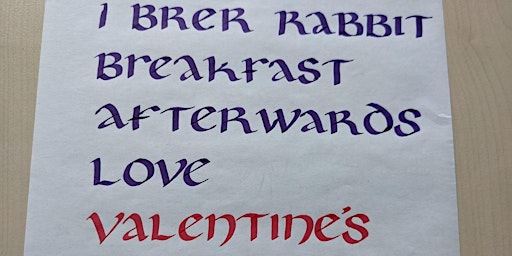 I BRER RABBIT
BREAKFAST
AFTERWARDS
LOVE
VALENTINE'S